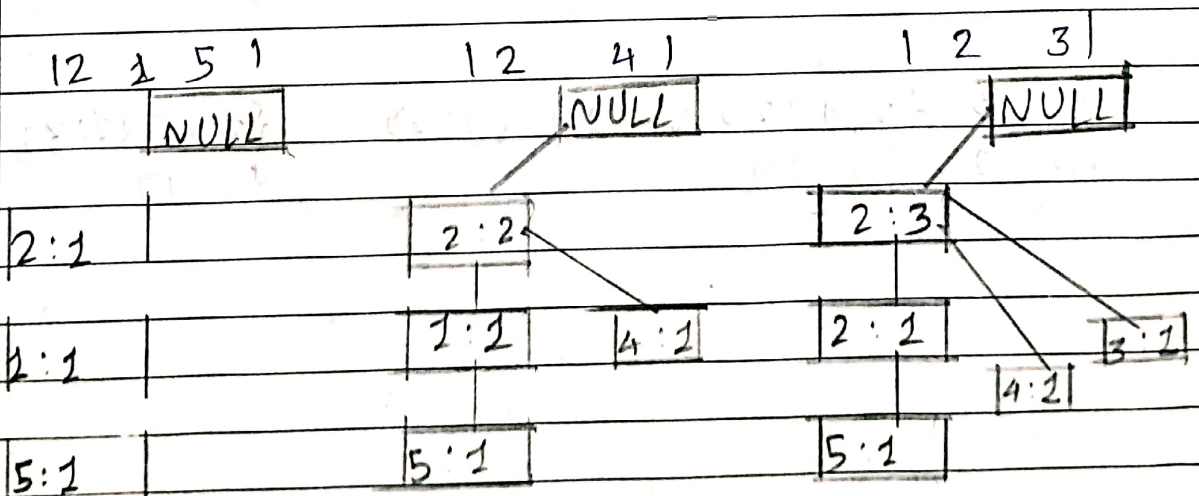 12 1 5 1 12 4 1 1 2 3 1
NULL NULL NULL
2:1 2:2 2:3
1:1 1:1 4:1 2:1 3:1
4:1
5:1 5:1 5:1